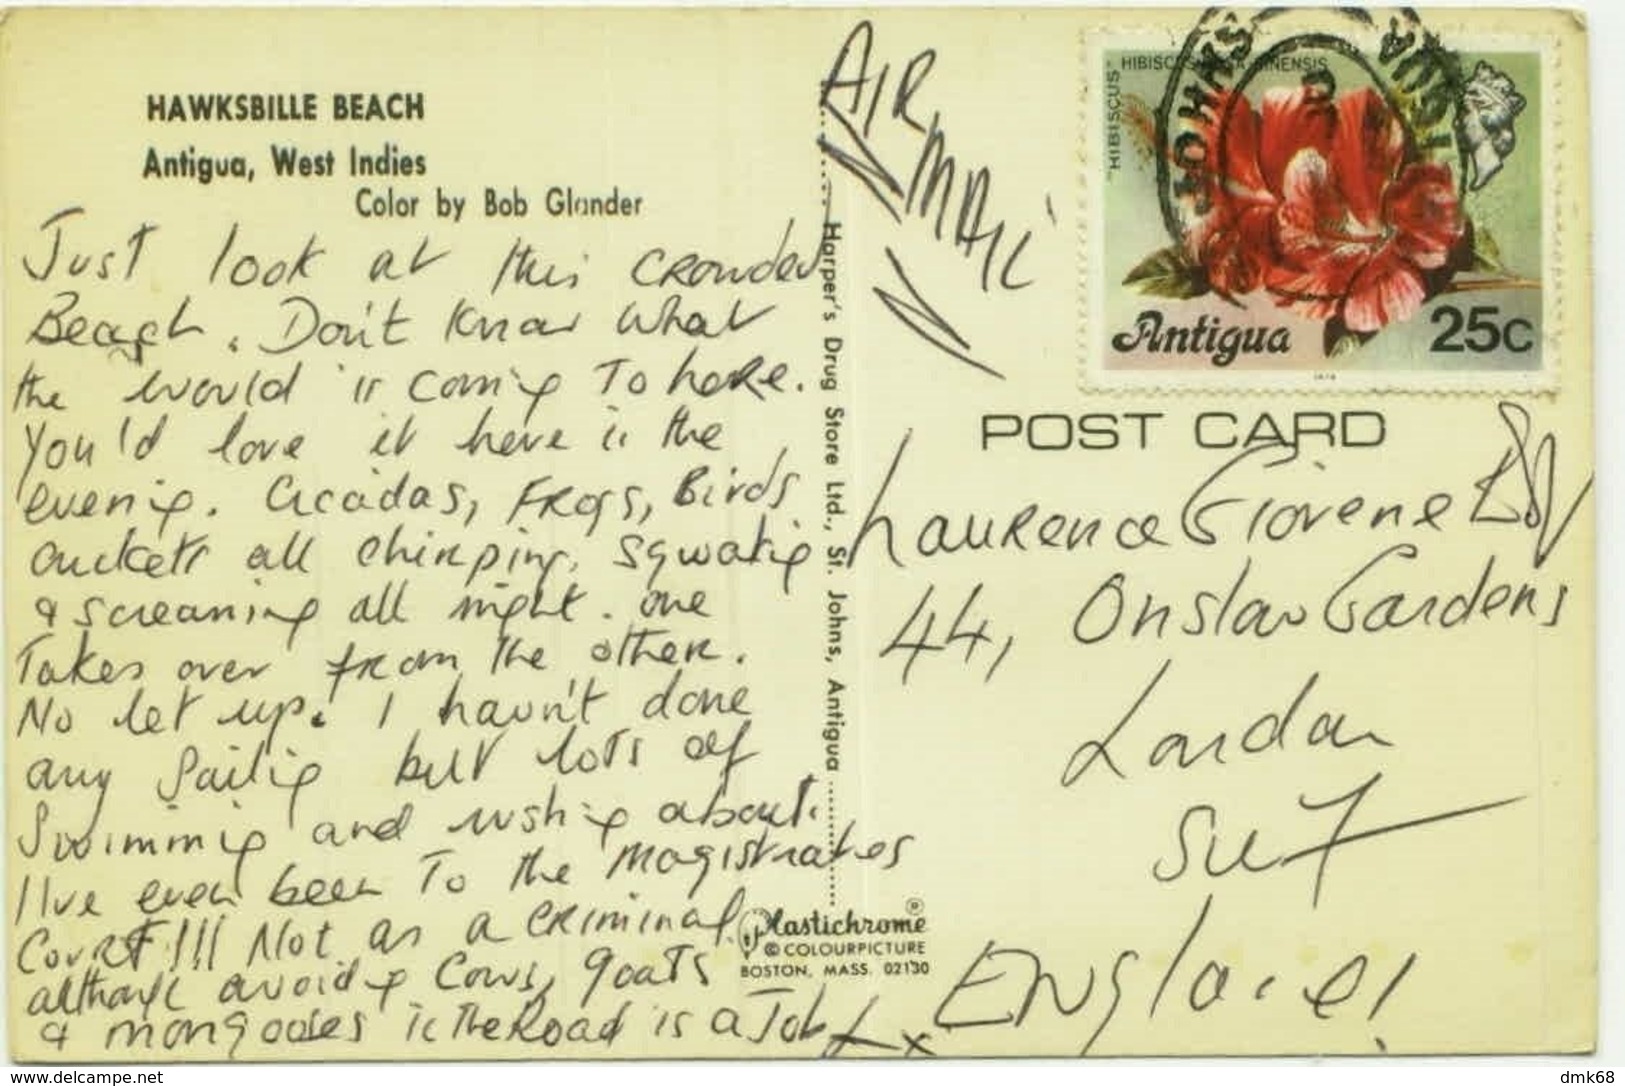 HAWKSBILLE BEACH
Antigua, West Indies
Color by Bob Glander
Just look at this crowded
Beach. Don't know what
the world is coming to here.
You'd love it here in the
evening. Cicadas, Frogs, Birds
crickets all chirping, squawking
& screaming all night. one
Takes over from the other.
No let up. I havn't done
any sailing but lots of
Swimming and rushing about.
I've even been To the Magistrates
Court!!! Not as a criminal
although avoiding Cows, goats
& mongooses in the Road is a Job
x
Harper's Drug Store Ltd., St. Johns, Antigua
Plastichrome ®
© COLOURPICTURE
BOSTON, MASS. 02130
AIR
MAIL
"HIBISCUS"
HIBISCUS ROSA-SINENSIS
Antigua 25c
ST. JOHN'S
POST CARD
Laurence Giovene Esq
44, Onslow Gardens
London
SW7
England
https://www.delcampe.net
dmk68